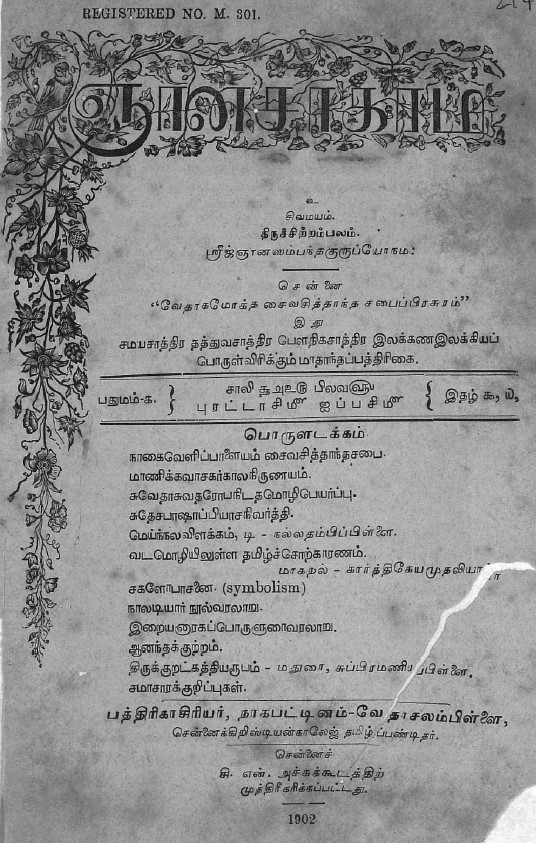 REGISTERED NO. M. 301.
ஞானசாகரம்
உ
சிவமயம்.
திருச்சிற்றம்பலம்.
ஸ்ரீஜ்ஞானஸம்பந்தகுருப்யோநம:
சென்னை
"வேதாகமோக்த சைவசித்தாந்த சபைப்பிரசுரம்"
இது
சமயசாத்திர தத்துவசாத்திர பௌதிகசாத்திர இலக்கணஇலக்கியப்
பொருள்விரிக்கும் மாதாந்தப்பத்திரிகை.
பதுமம்-க. } சாலி பிலவ { இதழ் ௯, ௰,
புரட்டாசிமீ ஐப்பசிமீ
பொருளடக்கம்.
நாகைவெளிப்பாளையம் சைவசித்தாந்தசபை.
மாணிக்கவாசகர்காலநிருணயம்.
சுவேதாசுவதரோபநிடதமொழிபெயர்ப்பு.
சுதேசபாஷாப்பியாசநிவர்த்தி.
மெய்ந்நலவிளக்கம், டி - நல்லதம்பிப்பிள்ளை.
வடமொழியிலுள்ள தமிழ்ச்சொற்காரணம்.
மாகறல் - கார்த்திகேயமுதலியார்
சகளோபாசனை. (symbolism)
நாலடியார் நூல்வரலாறு.
இறையனாரகப்பொருளுரைவரலாறு.
ஆனந்தக்குற்றம்.
திருக்குறட்கத்தியரூபம் - மதுரை, சுப்பிரமணியப்பிள்ளை.
சமாசாரக்குறிப்புகள்.
பத்திரிகாசிரியர், நாகபட்டினம்-வேதாசலம்பிள்ளை,
சென்னைக்கிறிஸ்டியன்காலேஜ் தமிழ்ப்பண்டிதர்.
சென்னைச்
சி. என். அச்சுக்கூடத்திற்
முத்திரீகரிக்கப்பட்டது.
1902